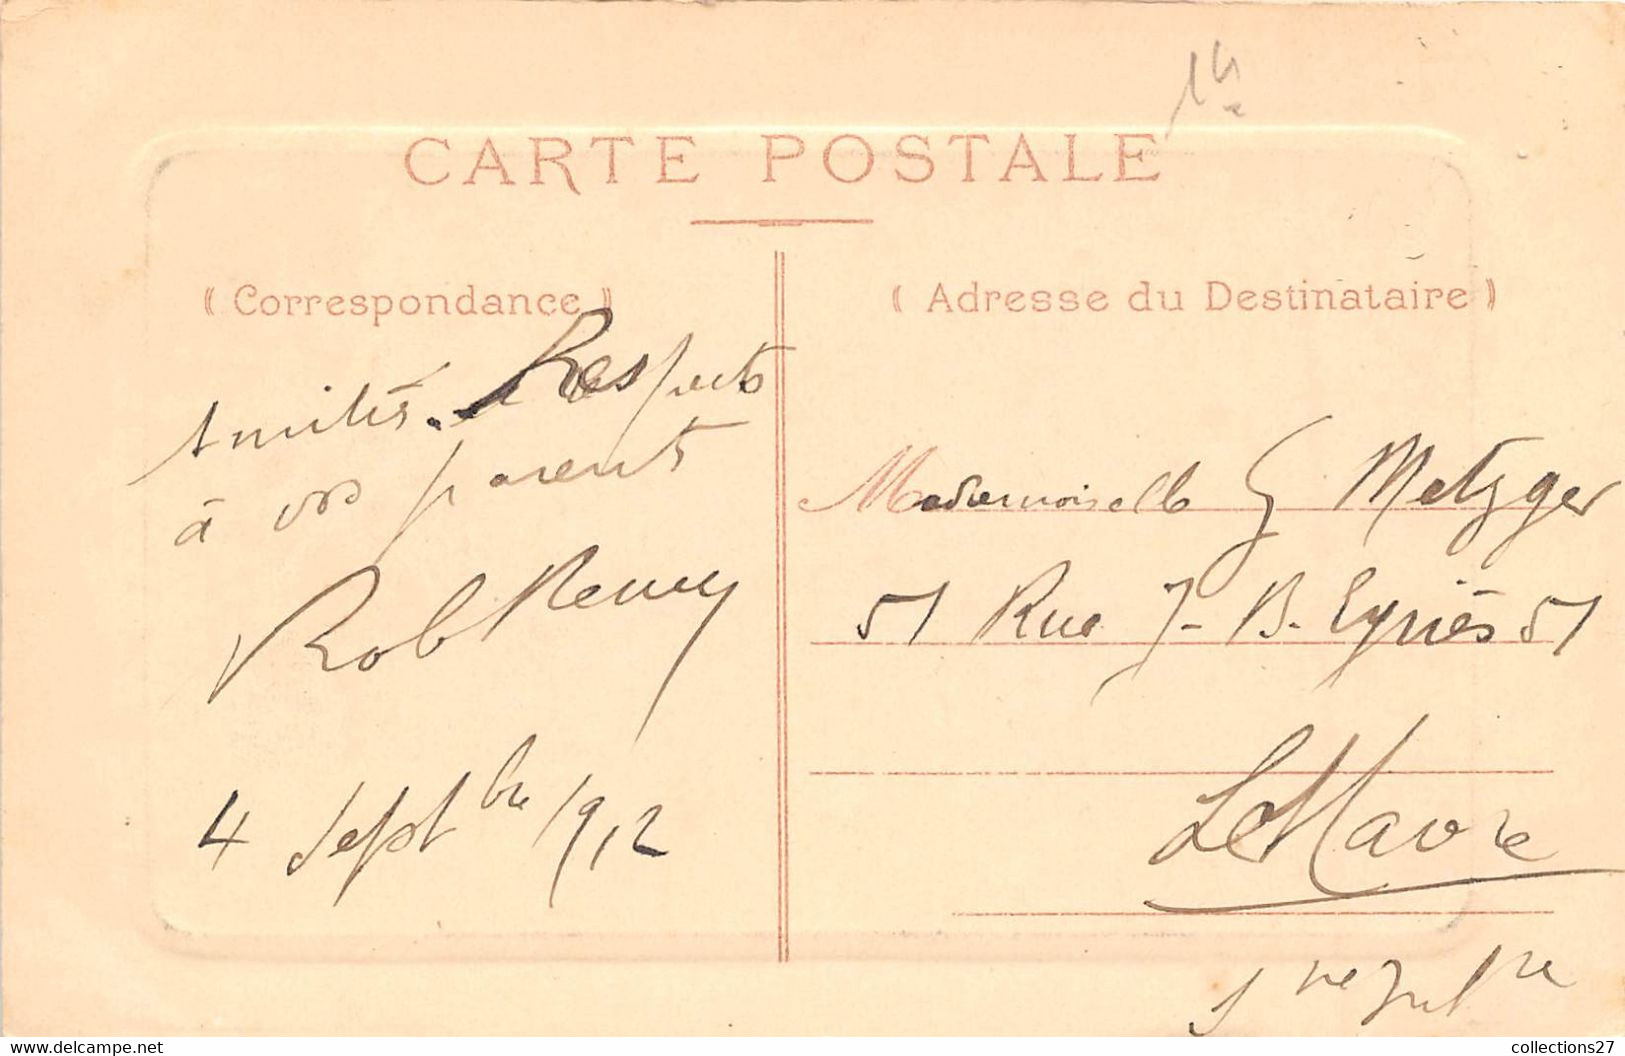 14
CARTE POSTALE
Correspondance
Amitiés. Respects
à vos parents
Rob Remy
4 Sept bre 1912
Adresse du Destinataire
Mademoiselle G Metzger
51 Rue J-B. Eyriès 51
Le Havre
Sne Infre
collections27